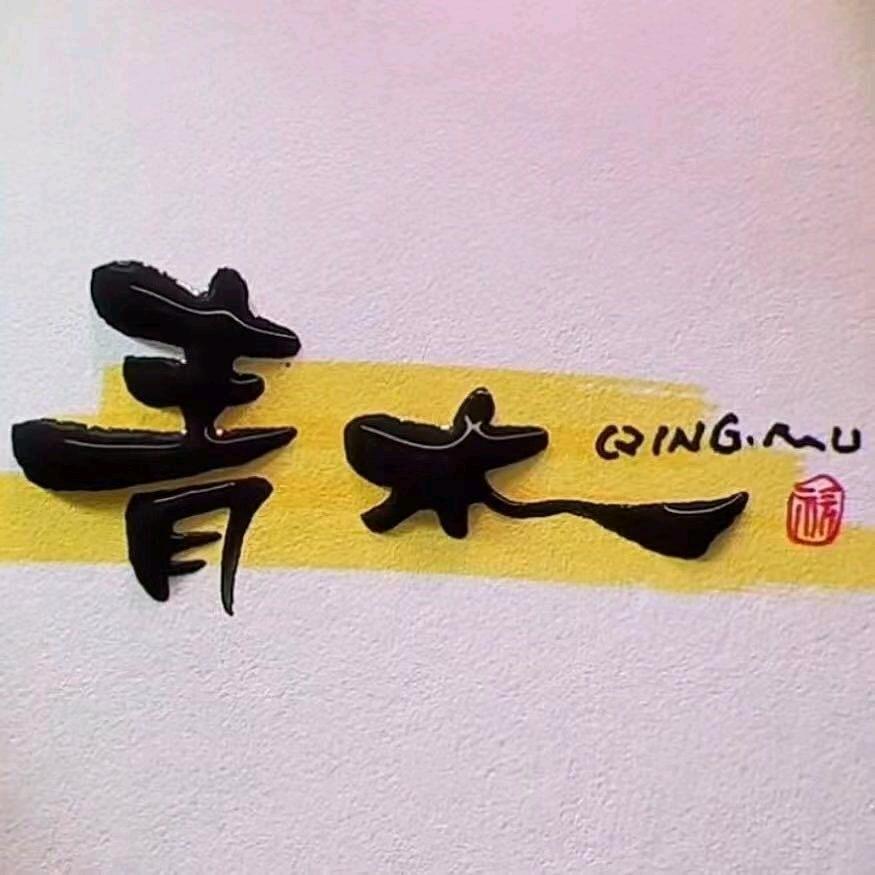 青木
QING.MU
福